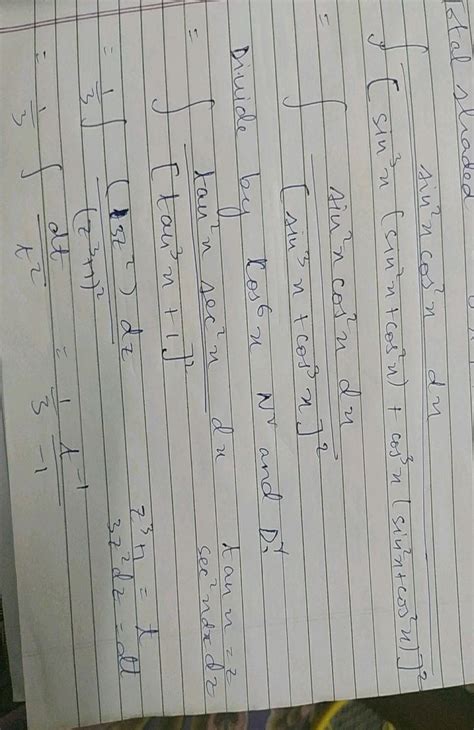 total shaded
∫ sin²x cos²x dx / [sin³x (sin²x + cos²x) + cos³x (sin²x + cos²x)]²
= ∫ sin²x cos²x dx / [sin³x + cos³x]²
Divide by cos⁶x Nʳ and Dʳ.
= ∫ tan²x sec²x dx / [tan³x + 1]²
tan x = z
sec²x dx = dz
= 1/3 ∫ (3z²) dz / (z³+1)²
z³+1 = t
3z²dz = dt
= 1/3 ∫ dt / t² = 1/3 t⁻¹ / -1